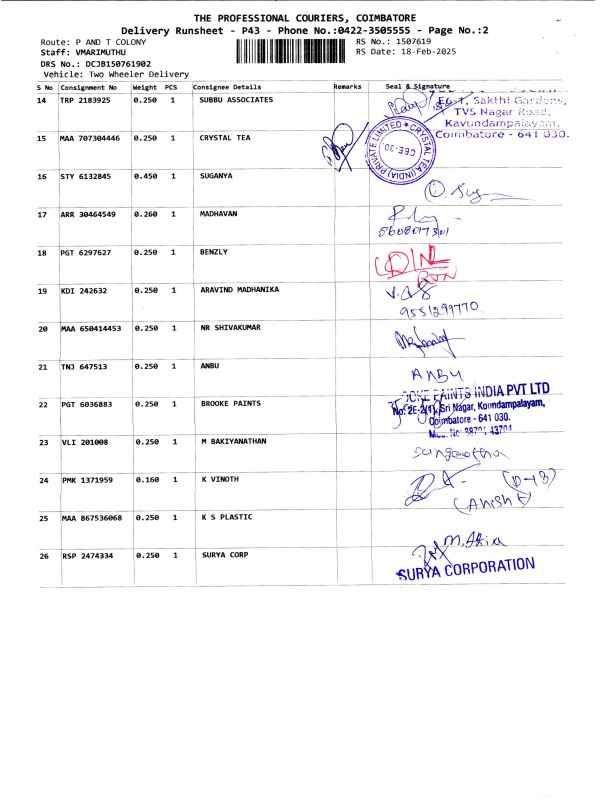 THE PROFESSIONAL COURIERS, COIMBATORE
Delivery Runsheet - P43 - Phone No.:0422-3505555 - Page No.:2
Route: P AND T COLONY RS No.: 1507619
Staff: VMARIMUTHU RS Date: 18-Feb-2025
DRS No.: DCJB150761902
Vehicle: Two Wheeler Delivery
S No Consignment No Weight PCS Consignee Details Remarks Seal & Signature
14 TRP 2183925 0.250 1 SUBBU ASSOCIATES
Sakthi Gardens,
TVS Nagar Road,
Kavundampalayam,
Coimbatore - 641 030.
15 MAA 707304446 0.250 1 CRYSTAL TEA
CRYSTAL TEA (INDIA) PRIVATE LIMITED
CBE-30
16 STY 6132845 0.450 1 SUGANYA
17 ARR 30464549 0.260 1 MADHAVAN
18 PGT 6297627 0.250 1 BENZLY
19 KDI 242632 0.250 1 ARAVIND MADHANIKA
9551299770
20 MAA 650414453 0.250 1 NR SHIVAKUMAR
21 TNJ 647513 0.250 1 ANBU
ANBU
22 PGT 6036883 0.250 1 BROOKE PAINTS
PAINTS INDIA PVT LTD
No: 2E-2(1), Sri Nagar, Koundampalayam,
Coimbatore - 641 030.
23 VLI 201008 0.250 1 M BAKIYANATHAN
24 PMK 1371959 0.160 1 K VINOTH
25 MAA 867536068 0.250 1 K S PLASTIC
26 RSP 2474334 0.250 1 SURYA CORP
SURYA CORPORATION